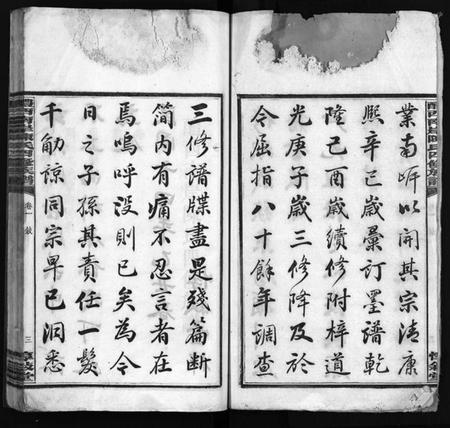 業南㟁以開其宗清康
熙辛巳歲彙訂墨譜乾
隆己酉歲續修附梓道
光庚子歲三修降及於
今屈指八十餘年調查
三修譜牒盡是殘篇斷
简内有痛不忍言者在
焉嗚呼没則已矣為今
日之子孫其責任一髮
千觔諒同宗早已洞悉
卷一敘
三